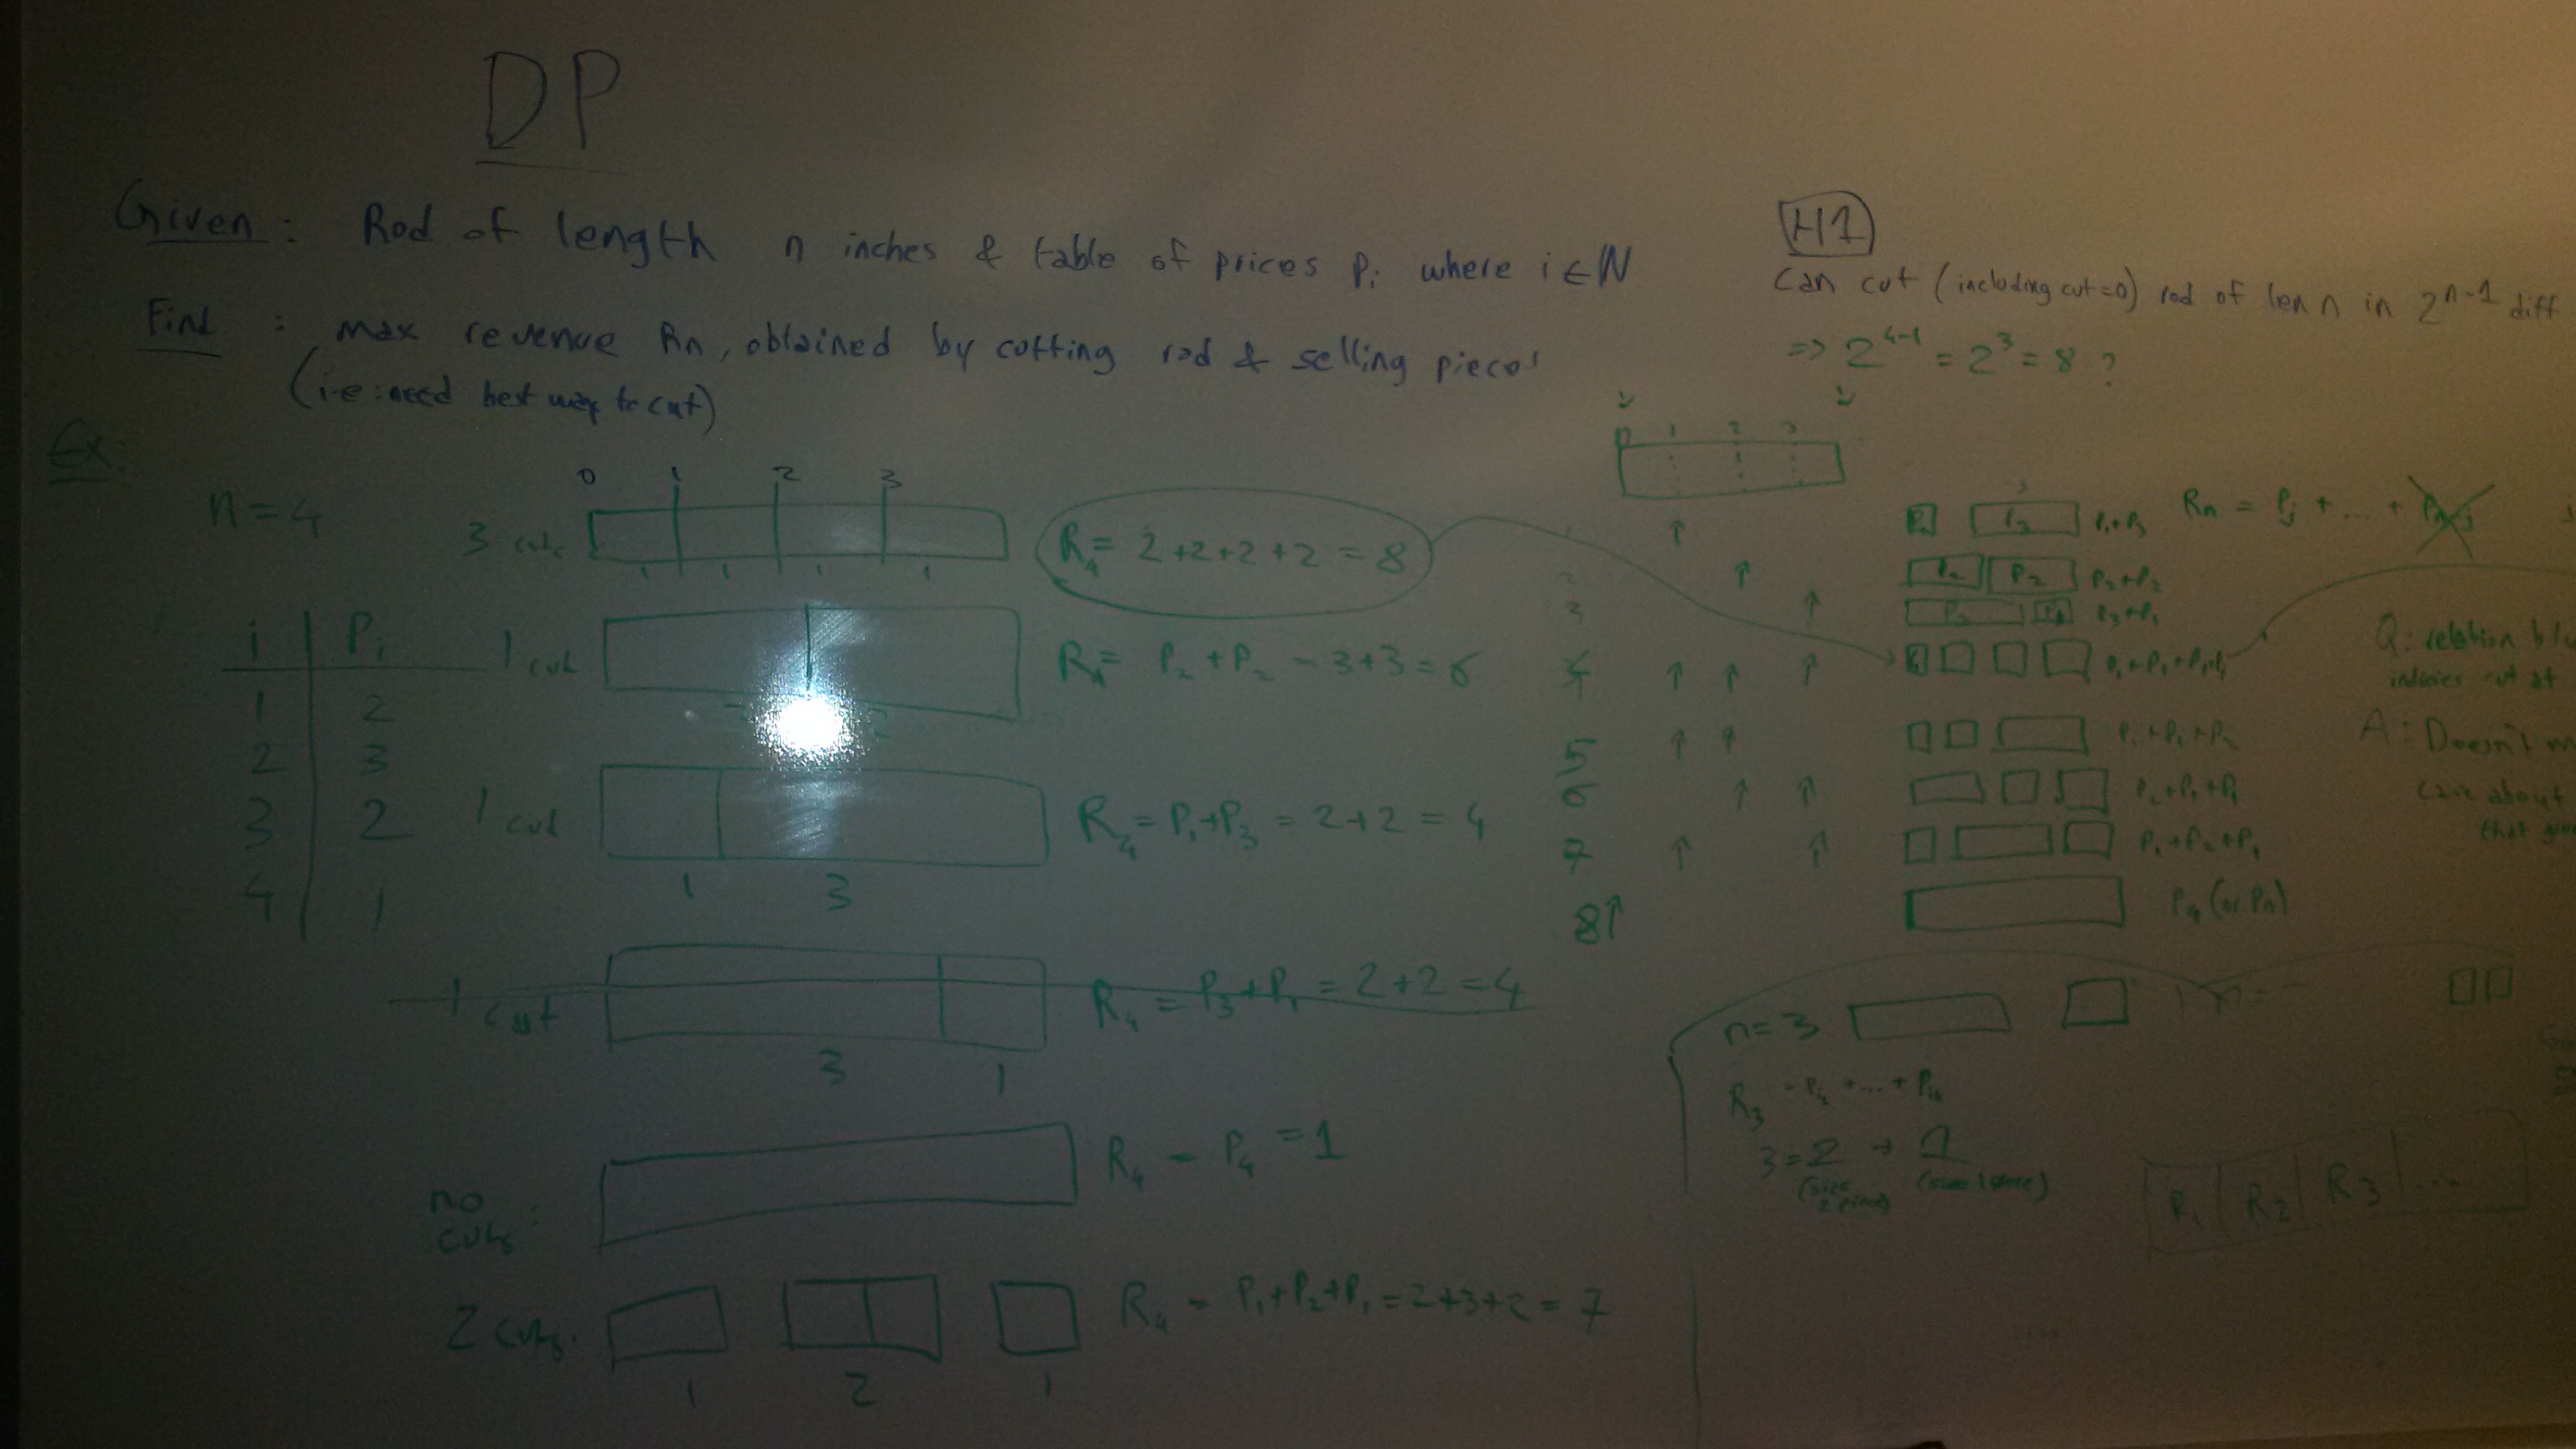 DP
Given: Rod of length n inches & table of prices Pi where i ∈ N
Find: max revenue Rn, obtained by cutting rod & selling pieces
(i.e: need best way to cut)
Ex:
n = 4
i Pi
1 2
2 3
3 2
4 1
0 1 2 3
3 cuts
1 1 1 1
R4 = 2+2+2+2 = 8
1 cut
R4 = P2 + P2 = 3+3 = 6
1 cut
1 3
R4 = P1+P3 = 2+2 = 4
1 cut
3 1
R4 = P3+P1 = 2+2 = 4
no cuts:
R4 = P4 = 1
2 cuts.
1 2 1
R4 = P1+P2+P1 = 2+3+2 = 7
H1
Can cut (including cut=0) rod of len n in 2^n-1 diff
=> 2^4-1 = 2^3 = 8 ?
0 1 2 3
P1 P3 P1+P3
Rn = Pj + ... + Pn-j
2 P2 P2 P2+P2
3 P3 P1 P3+P1
4 P1+P1+P1+P1
5 P1+P1+P2
6 P2+P1+P1
7 P1+P2+P1
8 P4 (or Pn)
Q: relation b/w
indicies cut at
A: Doesn't
care about
that
n=3
R3 = Pi1 + ... + Pik
3 = 2 + 1
(size 2 piece) (size 1 piece)
R1 R2 R3 ...